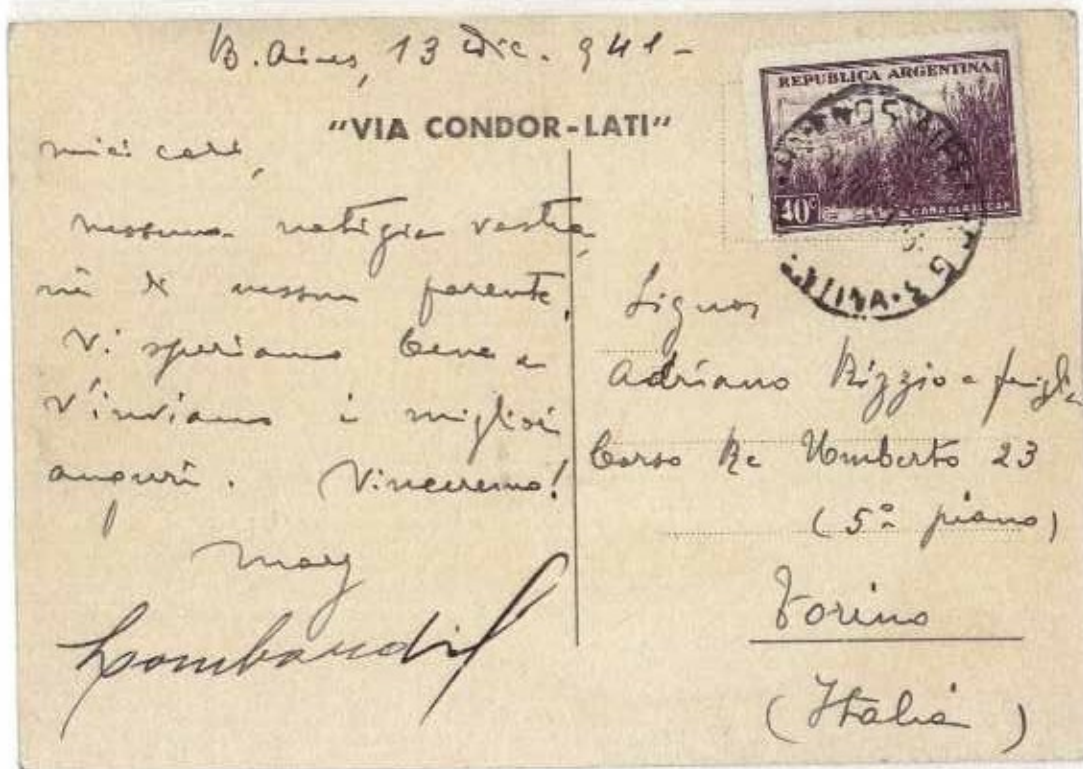 B. Aires, 13 Dic. 941-
"VIA CONDOR-LATI"
miei cari,
nessuna notizia vostra,
nè di nessun parente.
Vi speriamo bene e
V'inviamo i migliori
auguri. Vinceremo!
Lombardi
REPUBLICA ARGENTINA
40c
Signor
Adriano Rizzio e famiglia
Corso Re Umberto 23
(5º piano)
Torino
(Italia)